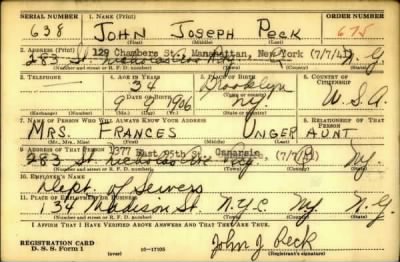 SERIAL NUMBER 1. NAME (Print) ORDER NUMBER
638 JOHN JOSEPH PECK 675
(First) (Middle) (Last)
2. ADDRESS (Print) 129 Chambers St. Manhattan, New York (7/7/4
283 St. Nicholas Ave N.Y.
(Number and street or R. F. D. number) (Town) (County) (State)
3. TELEPHONE 4. AGE IN YEARS 5. PLACE OF BIRTH 6. COUNTRY OF CITIZENSHIP
34 Brooklyn
DATE OF BIRTH
9 9 1906 N.Y. U.S.A.
(Mo.) (Day) (Yr.) (State or country)
7. NAME OF PERSON WHO WILL ALWAYS KNOW YOUR ADDRESS 8. RELATIONSHIP OF THAT PERSON
MRS. FRANCES UNGER AUNT
(Mr., Mrs., Miss) (First) (Middle) (Last)
9. ADDRESS OF THAT PERSON 1377 East 95th St. Canarsie,
283 St. Nicholas Ave N.Y.
(Number and street or R. F. D. number) (Town) (County) (State)
10. EMPLOYER'S NAME
Dept. of Sewers
11. PLACE OF EMPLOYMENT OR BUSINESS
134 Madison St. N.Y.C. NY N.Y.
(Number and street or R. F. D. number) (Town) (County) (State)
I AFFIRM THAT I HAVE VERIFIED ABOVE ANSWERS AND THAT THEY ARE TRUE.
REGISTRATION CARD
D. S. S. Form 1 (over) 16-17105 John J Peck
(Registrant's signature)